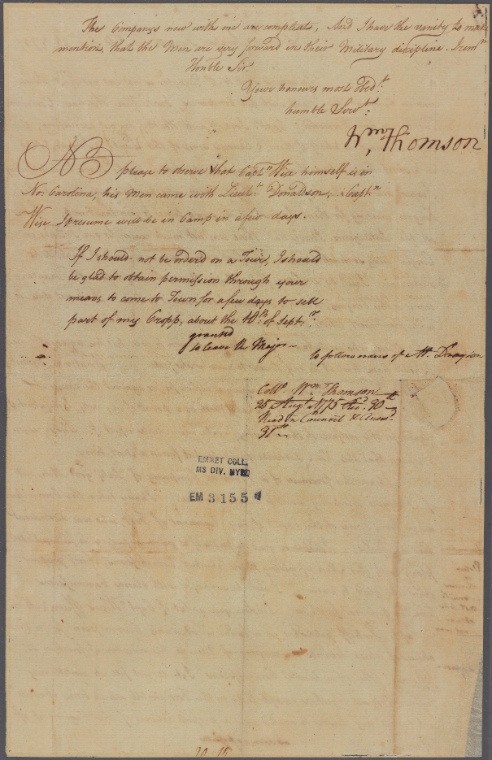 The Companys now with me are compleate, And I have the vanity to make
mention that the Men are very forward in their Military discipline. I am
Honble Sir
Your honours most Obedt
humble Servt
Wm Thomson
NB please to observe that Captn Wise himself is in
No Carolina, his Men came with Lieut Donaldson, Captn
Wise I presume will be in Camp in a few days.
If I should not be orderd on a Tour, I should
be glad to obtain permission through your
means to come to Town for a few days to sell
part of my Cropp, about the 10th of Septr
granted
to leave the Major
to follow orders of Mr Drayton
Collo Wm Thomson
Augt 1775 Recd 30th
Read in Council & Answd
31st
EMMET COLL.
MS DIV. NYPL
EM 3155